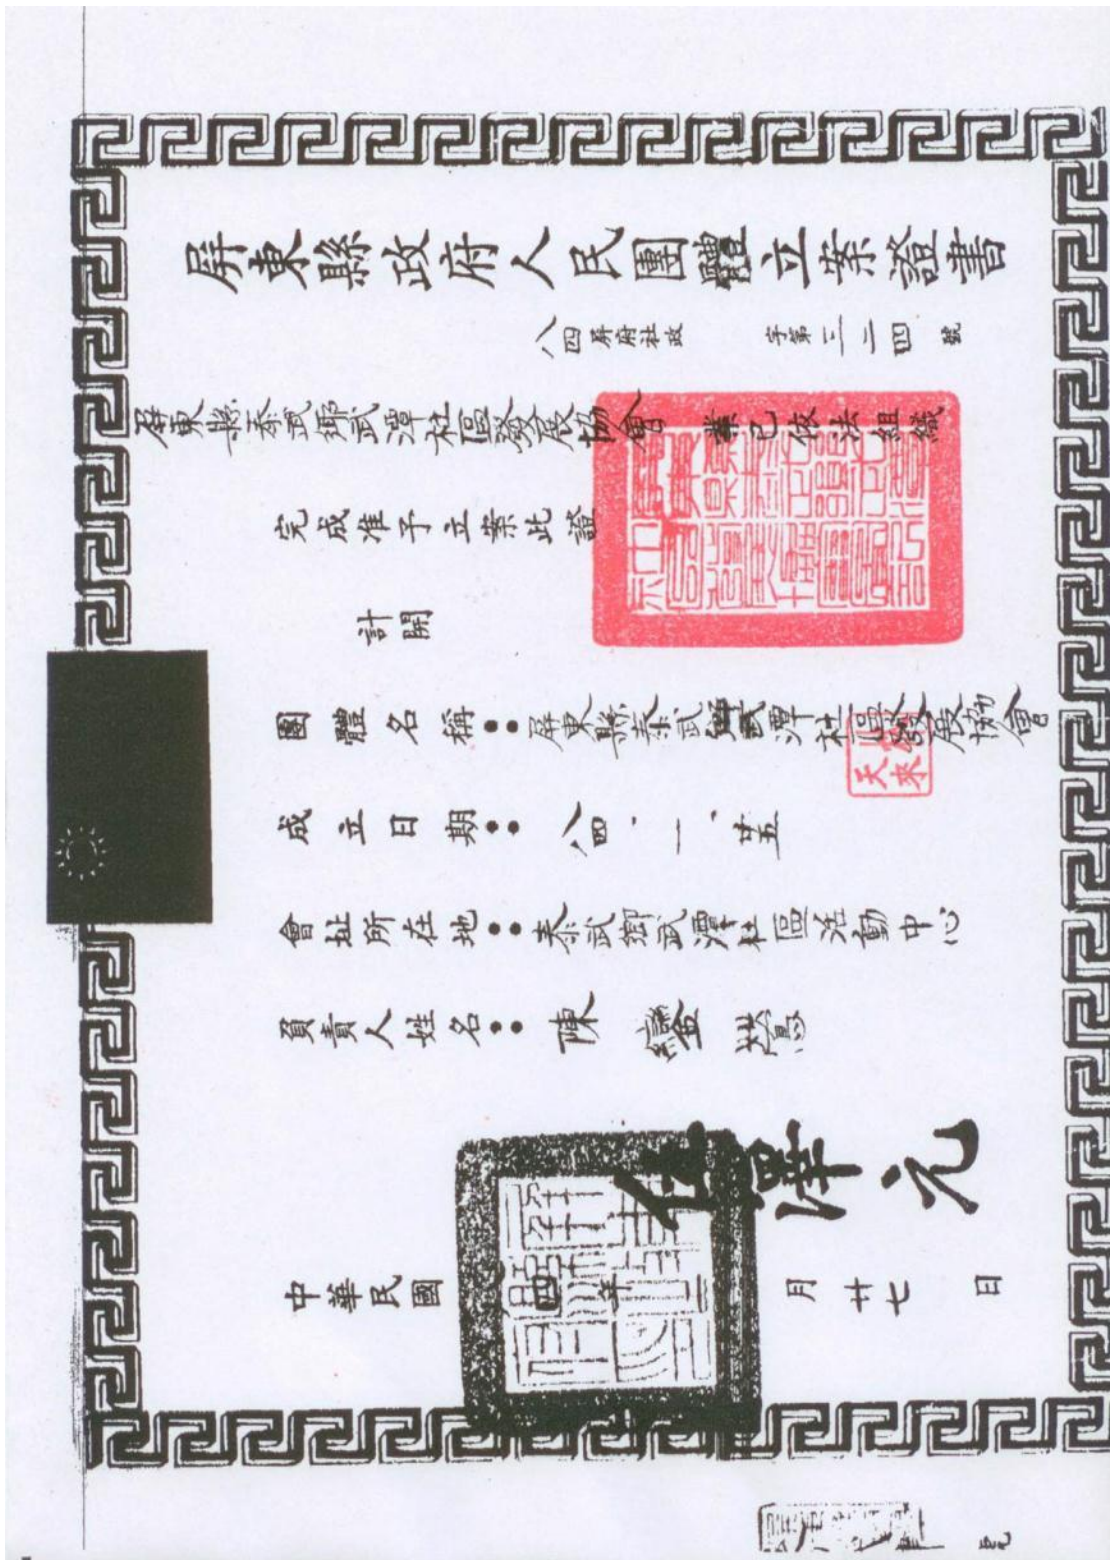 屏東縣政府人民團體立案證書
八四屏府社政字第三二四號
屏東縣泰武鄉武潭社區發展協會業已依法組織
完成准予立案此證
計開
團體名稱：屏東縣泰武鄉武潭社區發展協會
成立日期：八四、一、廿五
會址所在地：泰武鄉武潭社區活動中心
負責人姓名：陳
伍澤元
中華民國 四年 月廿七日
天來